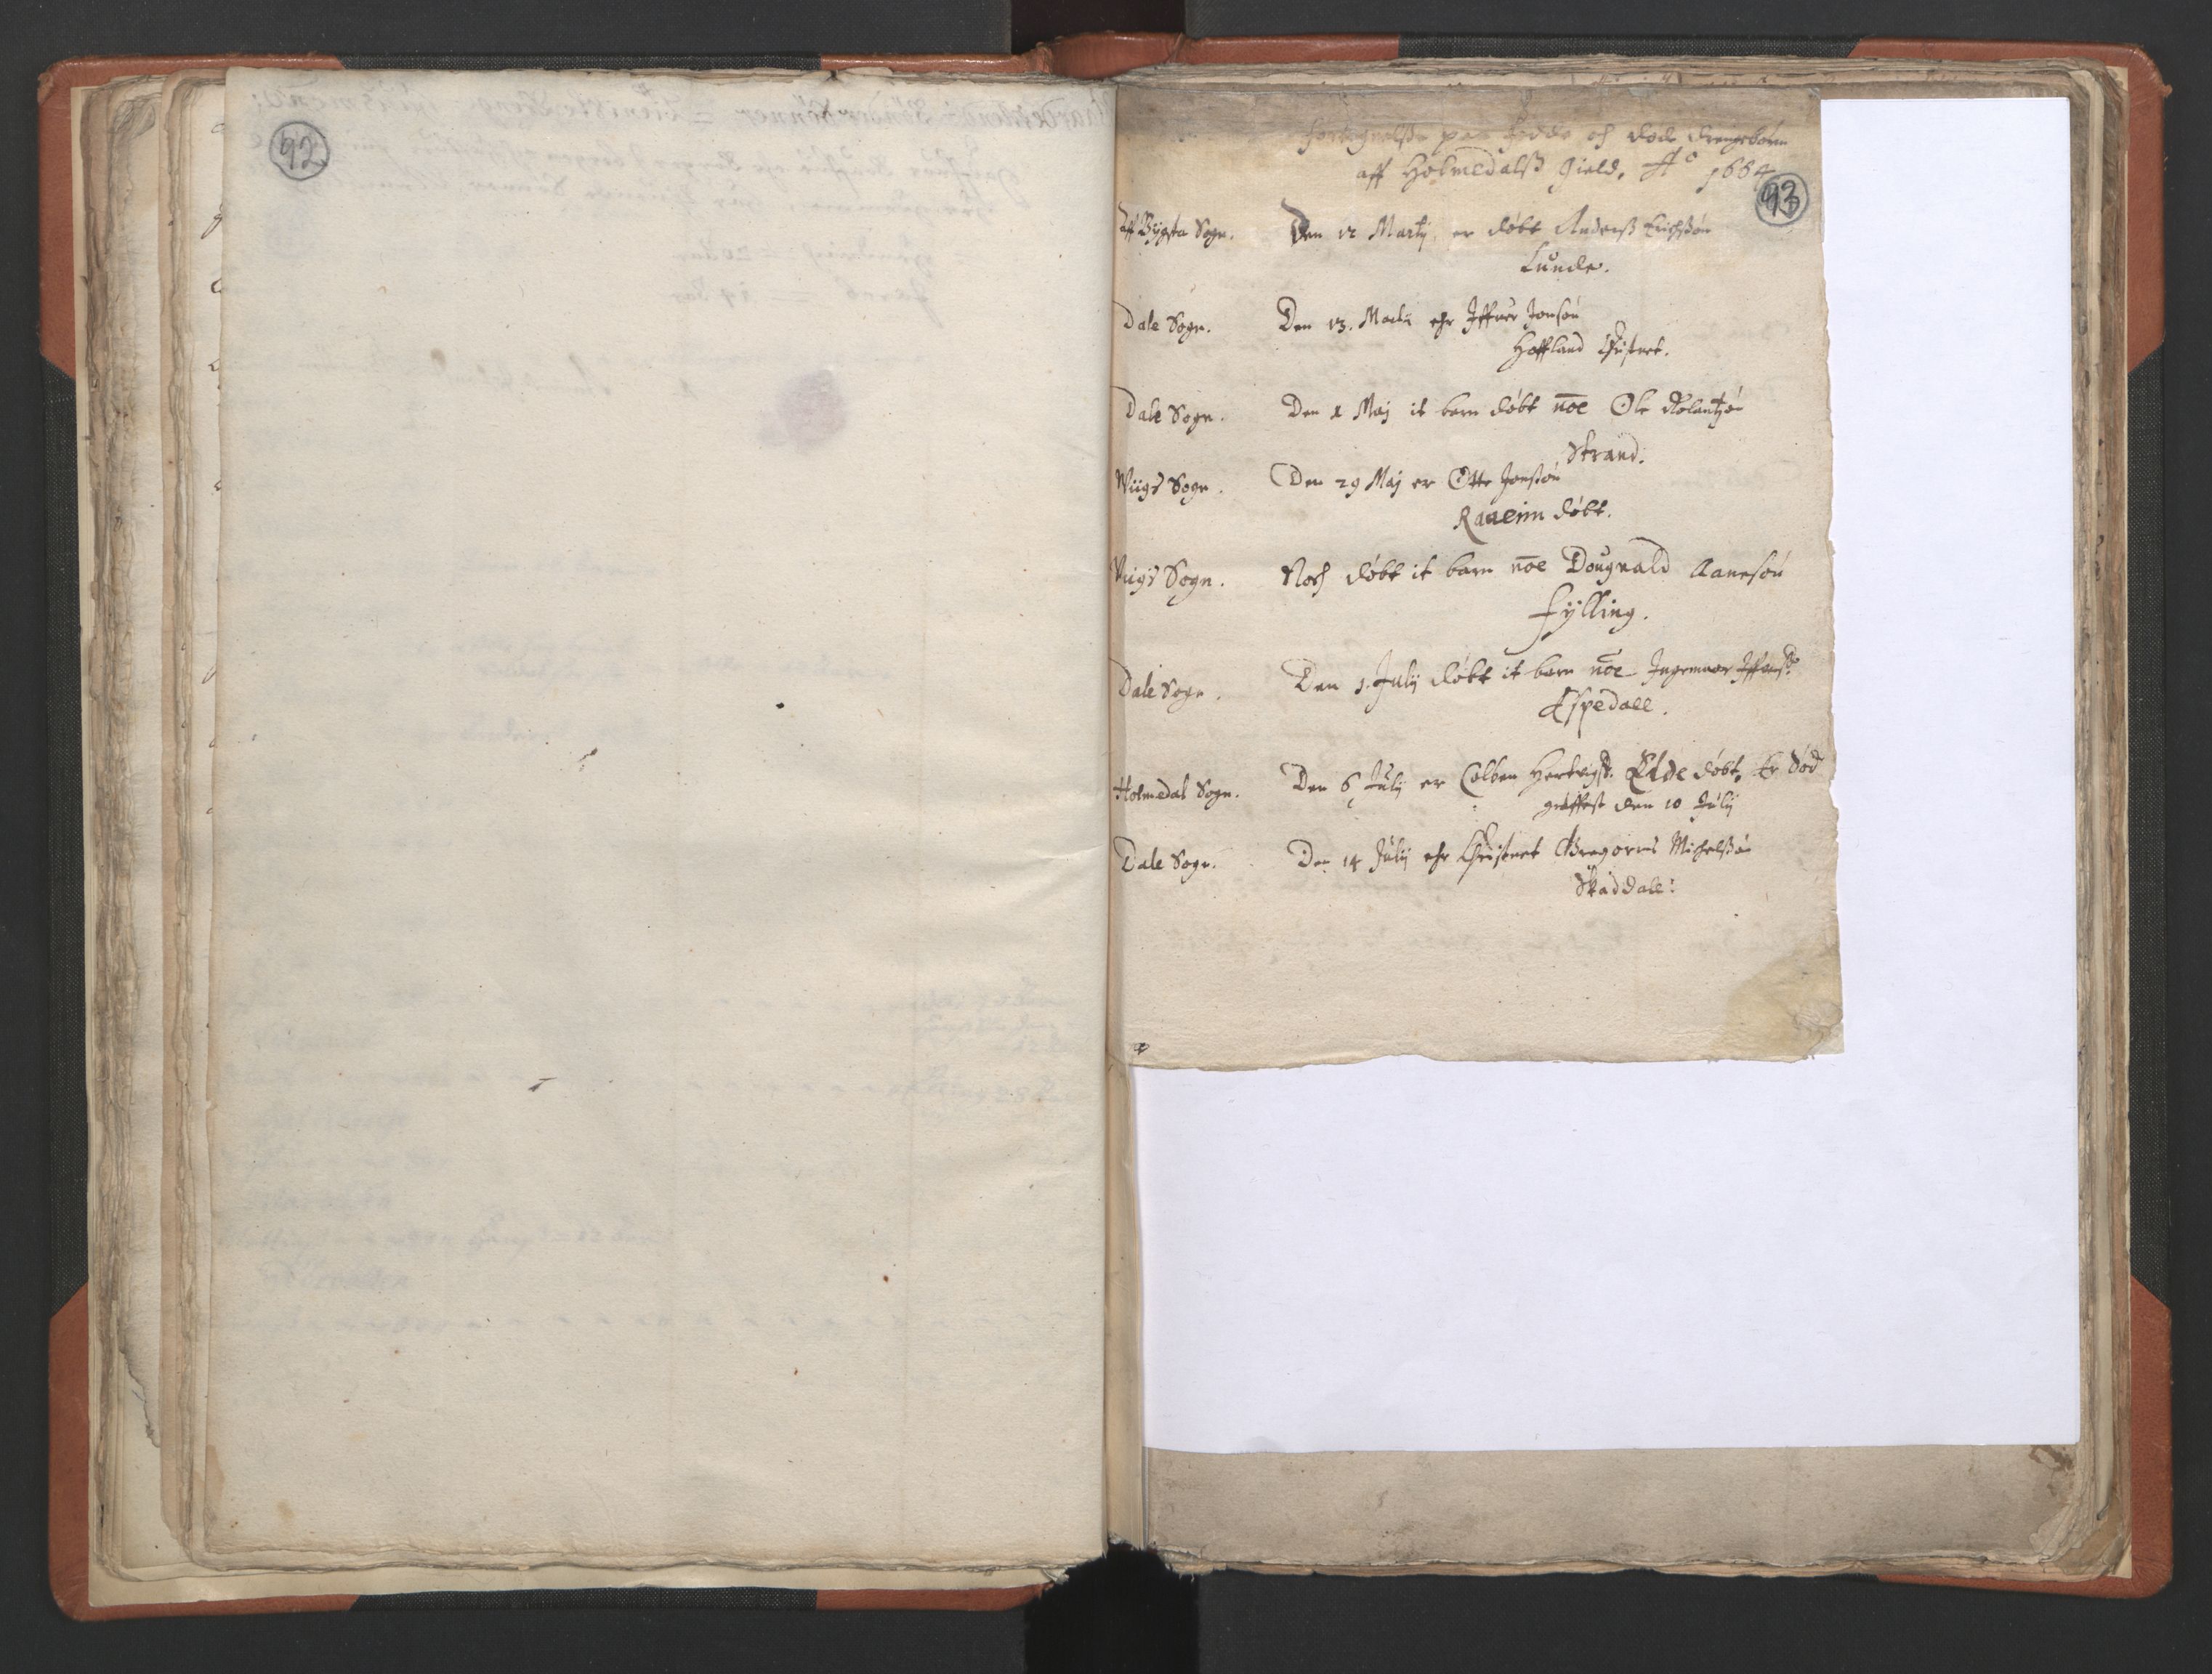 92
93
fortegnelsse paa födde och döde drengebörn
aff Holmedalß gield, Aº 1664
Aff Bygsta Sogn. Den 12 Martij er döbt Anderß Erichßön
Lunde.
Dale Sogn. Den 13. Martij ehr Iffuer Jonsön
Hoffland Christnet.
Dale Sogn. Den 1 Maj it barn döbt noe Ole Rolantzön
Strand.
Wiigs Sogn. Den 29 Maj er Otte Jonsön
Raaeim döbt.
Wiigs Sogn. Noch döbt it barn noe Dougnald Aanesön
Fylling.
Dale Sogn. Den 1. Julij döbt it barn noe Ingemaar Iffuers:
Espedall.
Holmedal Sogn. Den 6 Julij er Colben Hertvigs. Elde döbt, Er död
graffest den 10 Julij
Dale Sogn. Den 14 Julij ehr Christnet Gregorius Michelßön
Skaddall: